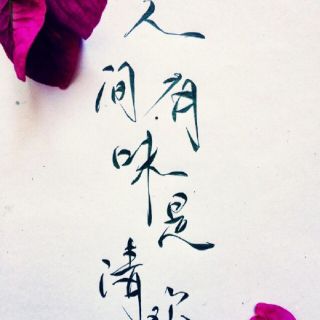 人间有味是清欢